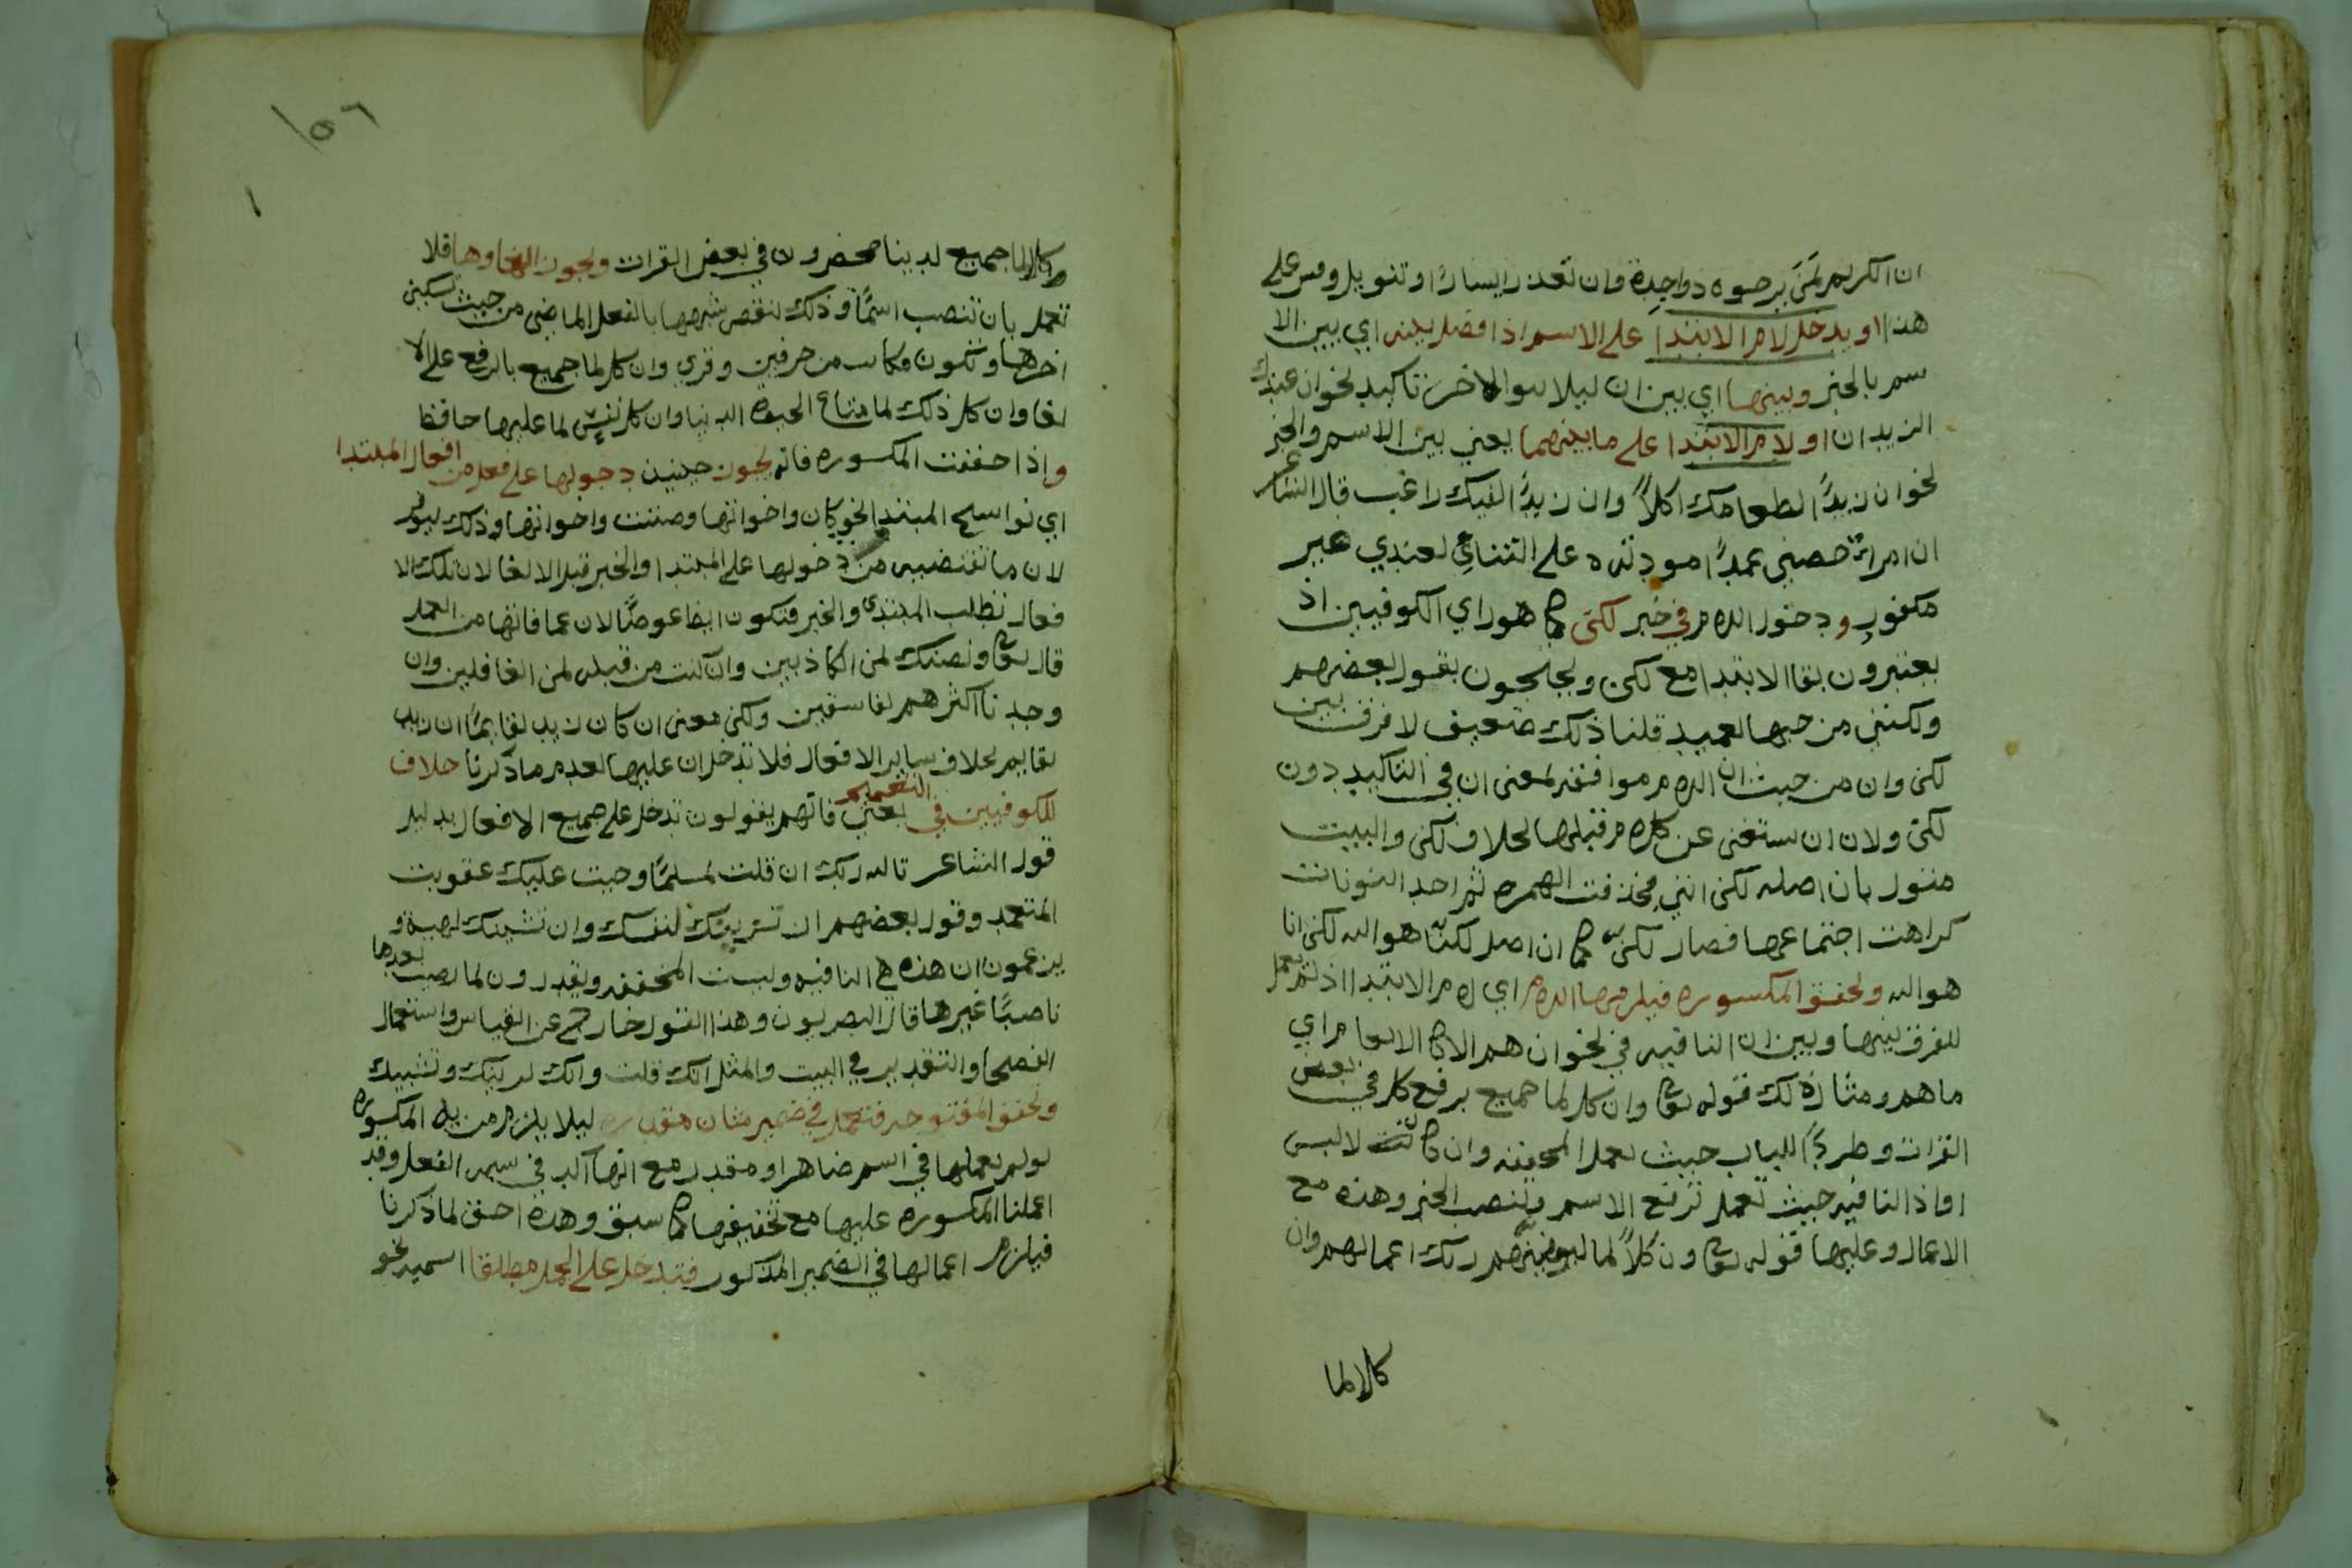 ان الكريم لمن يرجوه ذو جدة وان تعذر ايسار او تنويل وقس على
هذا او يدخل لام الابتدا على الاسم اذا فصل بينه اي بين الا
سم بالخبر وبينها اي بين ان ليلا يتوالا حرفا تاكيد نحو ان عندك
الزيدان او لام الابتدا على ما بينهما يعني بين الاسم والخبر
نحو ان زيدًا لطعامك اكلاً وان زيدًا لفيك راغب قال الشاعر
ان امرا خصني عمدًا مودته على التناي لعندي غير
مكفور ودخول اللام في خبر لكن كما هو راي الكوفيين اذ
يعتبرون بقا الابتدا مع لكن ويحتجون بقول بعضهم
ولكنني من حبها لعميد قلنا ذلك ضعيف لا فرق بين
لكن وان من حيث ان اللام موافقه لمعنى ان في التاكيد دون
لكن ولان ان ستغنى عن كلام قبلها بخلاف لكن والبيت
منول بان اصله لكن انني فحذفت الهمزه ثم احد النونات
كراهت اجتماعها فصار لكن كما ان اصل لكنا هو الله لكن انا
هو الله وتخفف المكسوره فيلزمها اللام اي لام الابتدا اذ لم تعمل
للفرق بينها وبين ان النافيه في نحو ان هم الا كالانعام اي
ما هم ومثال ذلك قوله تعالى وان كل لما جميع برفع كل في بعض
القرات وطردًا للباب حيث تعمل المخففه وان كانت لا لبس
اذ النافيه حيث تعمل ترفع الاسم وتنصب الخبر وهذه مع
الاعمال وعليها قوله تعالى وان كلاً لما ليوفينهم ربك اعمالهم وان
كلا لما
١٥٦
١
وكلا لما جميع لدينا محضرون في بعض القرات ويجوز الغاوها فلا
تعمل بان تنصب اسمًا وذلك لنقص شبهها بالفعل الماضي من حيث تسكين
اخرها وتكون مكانت من حرفين وقري وان كل لما جميع بالرفع على الا
لغا وان كل ذلك لما متاع الحيوه الدنيا وان كل نفس لما عليها حافظ
واذا خففت المكسوره فانه يجوز حينئذ دخولها على فعل من افعال المبتدا
اي نواسخ المبتدا نحو كان واخواتها وظننت واخواتها وذلك ليوفر
لان ما تقتضيه من دخولها على المبتدا والخبر قبل الالغا لان تلك الا
فعال تطلب المبتدى والخبر فتكون ايضا عوضًا لان عما فاتها من العمل
قال تعالى ونظنك لمن الكاذبين وان كنت من قبله لمن الغافلين وان
وجدنا اكثرهم لفاسقين ولكن معنى ان كان زيد لقايمًا ان زيد
لقايم بخلاف ساير الافعال فلا تدخل ان عليها لعدم ما ذكرنا خلاف
للكوفيين في التعميم يعني فانهم يقولون تدخل على جميع الافعال بدليل
قول الشاعر تالله ربك ان قتلت لمسلمًا وجبت عليك عقوبت
المتعمد وقول بعضهم ان تزينك لنفسك وان تشينك لهيه و
يزعمون ان هذه هي النافيه وليست المخففه ويقدرون لما نصبت بعدها
ناصبًا غيرها قال البصريون وهذا القول خارج عن القياس واستعمال
الفصحا والتقدير في البيت والمثل انك قتلت وانك لتزينك وتشينك
وتخفف المفتوحه فتعمل في ضمير شان مقدره ليلا يلزم مزيه المكسوره
لو لم يعملها في اسم ظاهر او مقدر مع انها اكد في شبه الفعل وقد
اعملنا المكسوره عليها مع تخفيفها كما سبق وهذه احق لما ذكرنا
فيلزم اعمالها في الضمير المذكور فتدخل على الجمل مطلقا اسميه نحو